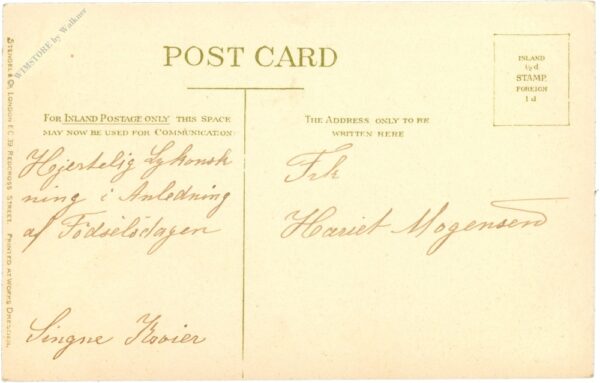 WIMSTORE by Walkner
POST CARD
INLAND
½d.
STAMP.
FOREIGN
1d
FOR INLAND POSTAGE ONLY THIS SPACE
MAY NOW BE USED FOR COMMUNICATION
THE ADDRESS ONLY TO BE
WRITTEN HERE
Hjertelig Lykønsk
ning i Anledning
af Fødselsdagen
Singne
Frk
Hariet Mogensen
STENGEL & Co., LONDON E.C. 39, REDCROSS STREET. PRINTED AT WORKS DRESDEN.